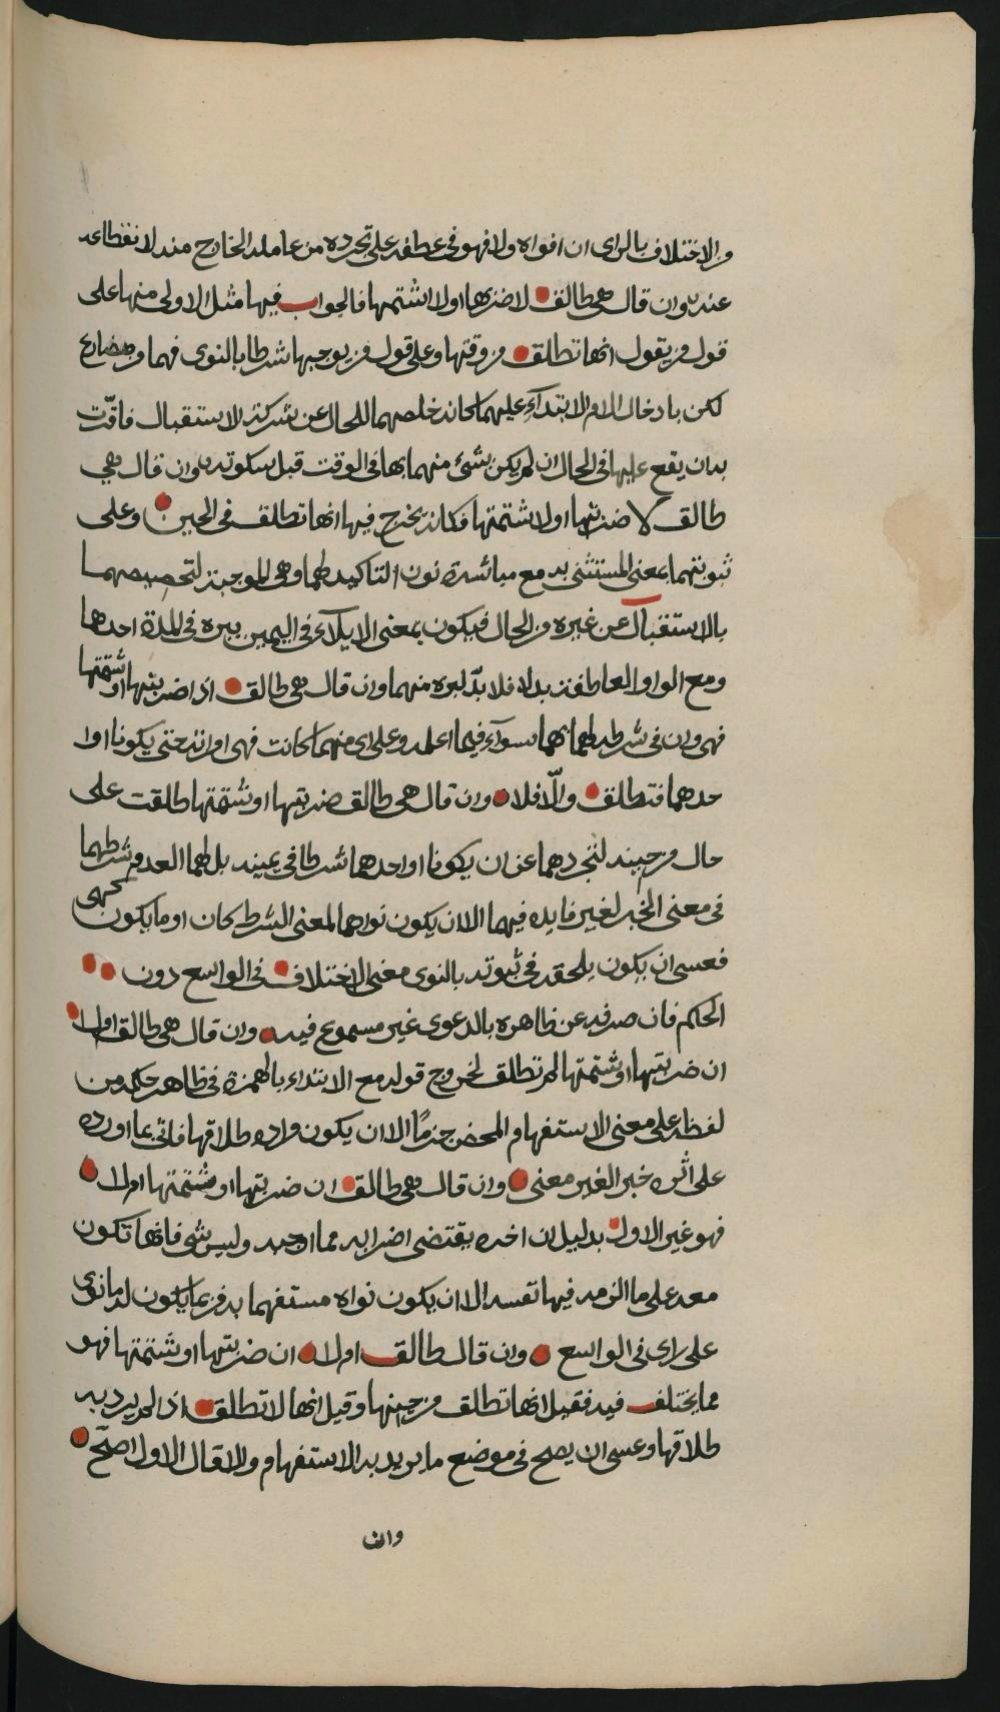 والاختلاف بالراى ان افواه ولا فهو فى عطفه على تجرده من عامله الخارج منه لانقطاعه
عنه وان قال هى طالق لاضربها اولا اشتمها فالجواب فيها مثل الاولى منها على
قول من يقول انها تطلق من وقتها وعلى قول من يوجبها شرطا بالنوى فهما من مضارع
لكن بادخال اللام الابتداء عليهما كانه خلصهما للحال عن شركة الاستقبال فاقرت
به ان يقع عليها فى الحال ان لم يكن بشىء منهما بها فى الوقت قبل سكوته وان قال هى
طالق لا ضربتها اولا شتمتها فكانه يخرج فيها انها تطلق فى الحين وعلى
ثبوتهما بمعنى المستثنى به مع مباشرة نون التاكيد لهما وهى الموجبة لتخصيصهما
بالاستقبال عن غيره من الحال فيكون بمعنى الايلاء فى اليمين ببره فى المدة احدهما
ومع الواو العاطفة بدلا فلا بد لبره منهما وان قال هى طالق اذا ضربتها او شتمتها
فهى وان فى شرطه لهما بهما سواء فيما اعلمه وعلى اى منهما كانت فهى امراته حتى يكونا او ا
حدهما فتطلق والا فلا وان قال هى طالق ضربتها او شتمتها طلقت على
حال من حينه لتجردهما عن ان يكونا او احدهما شرطا فى يمينه بل لهما العدم شرطهما
فى معنى الخبر لغير فايده فيهما الا ان يكون نواهما لمعنى الشرط كان او ما يكون كهى
فعسى ان يكون يلحقه فى ثبوته بالنوى معنى الاختلاف فى الواسع دون
الحاكم فان صرفه عن ظاهره بالدعوى غير مسموع فيه وان قال هى طالق اولا
ان ضربتها او شتمتها لم تطلق لخروج قوله مع الابتداء بالهمزة فى ظاهر حكمه من
لفظه على معنى الاستفهام المحض جزما الا ان يكون مراده طلاقها فاتى بما اورده
على اثره خبر الغير معنى وان قال هى طالق ان ضربتها او شتمتها ام لا
فهو غير الاول بدليل ان اخره يقتضى اضرابه مما اوجبه وليس شى فانها تكون
معه على ما الزمه فيها نفسه الا ان يكون نواه مستفهما به فربما يكون له ما نوى
على راى فى الواسع وان قال طالق ام لا ان ضربتها او شتمتها فهو
مما يختلف فيه فقيل انها تطلق من حينها وقيل انها لا تطلق اذا لم يرد به
طلاقها وعسى ان يصح فى موضع ما يريد به الاستفهام والا قال الاول اصح
وان